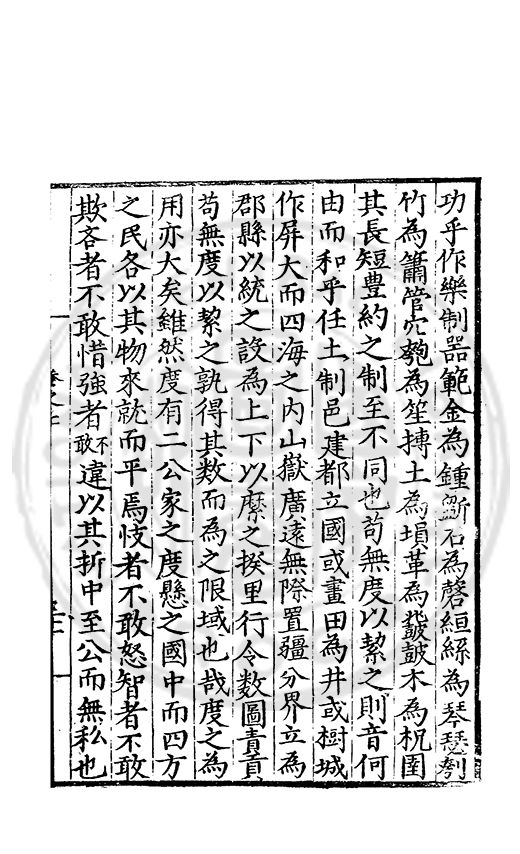 功乎作樂制器範金為鍾斲石為磬絙絲為琴瑟刳
竹為簫管穴匏為笙摶土為塤革為鼗鼓木為柷圉
其長短豐約之制至不同也苟無度以絜之則音何
由而和乎任土制邑建都立國或畫田為井或樹城
作屏大而四海之内山嶽廣遠無際置疆分界立為
郡縣以統之設為上下以縻之揆里行令数圖責貢
苟無度以絜之孰得其数而為之限域也哉度之為
用亦大矣雖然度有二公家之度懸之國中而四方
之民各以其物來就而平焉忮者不敢怒智者不敢
欺吝者不敢惜強者不敢違以其折中至公而無私也